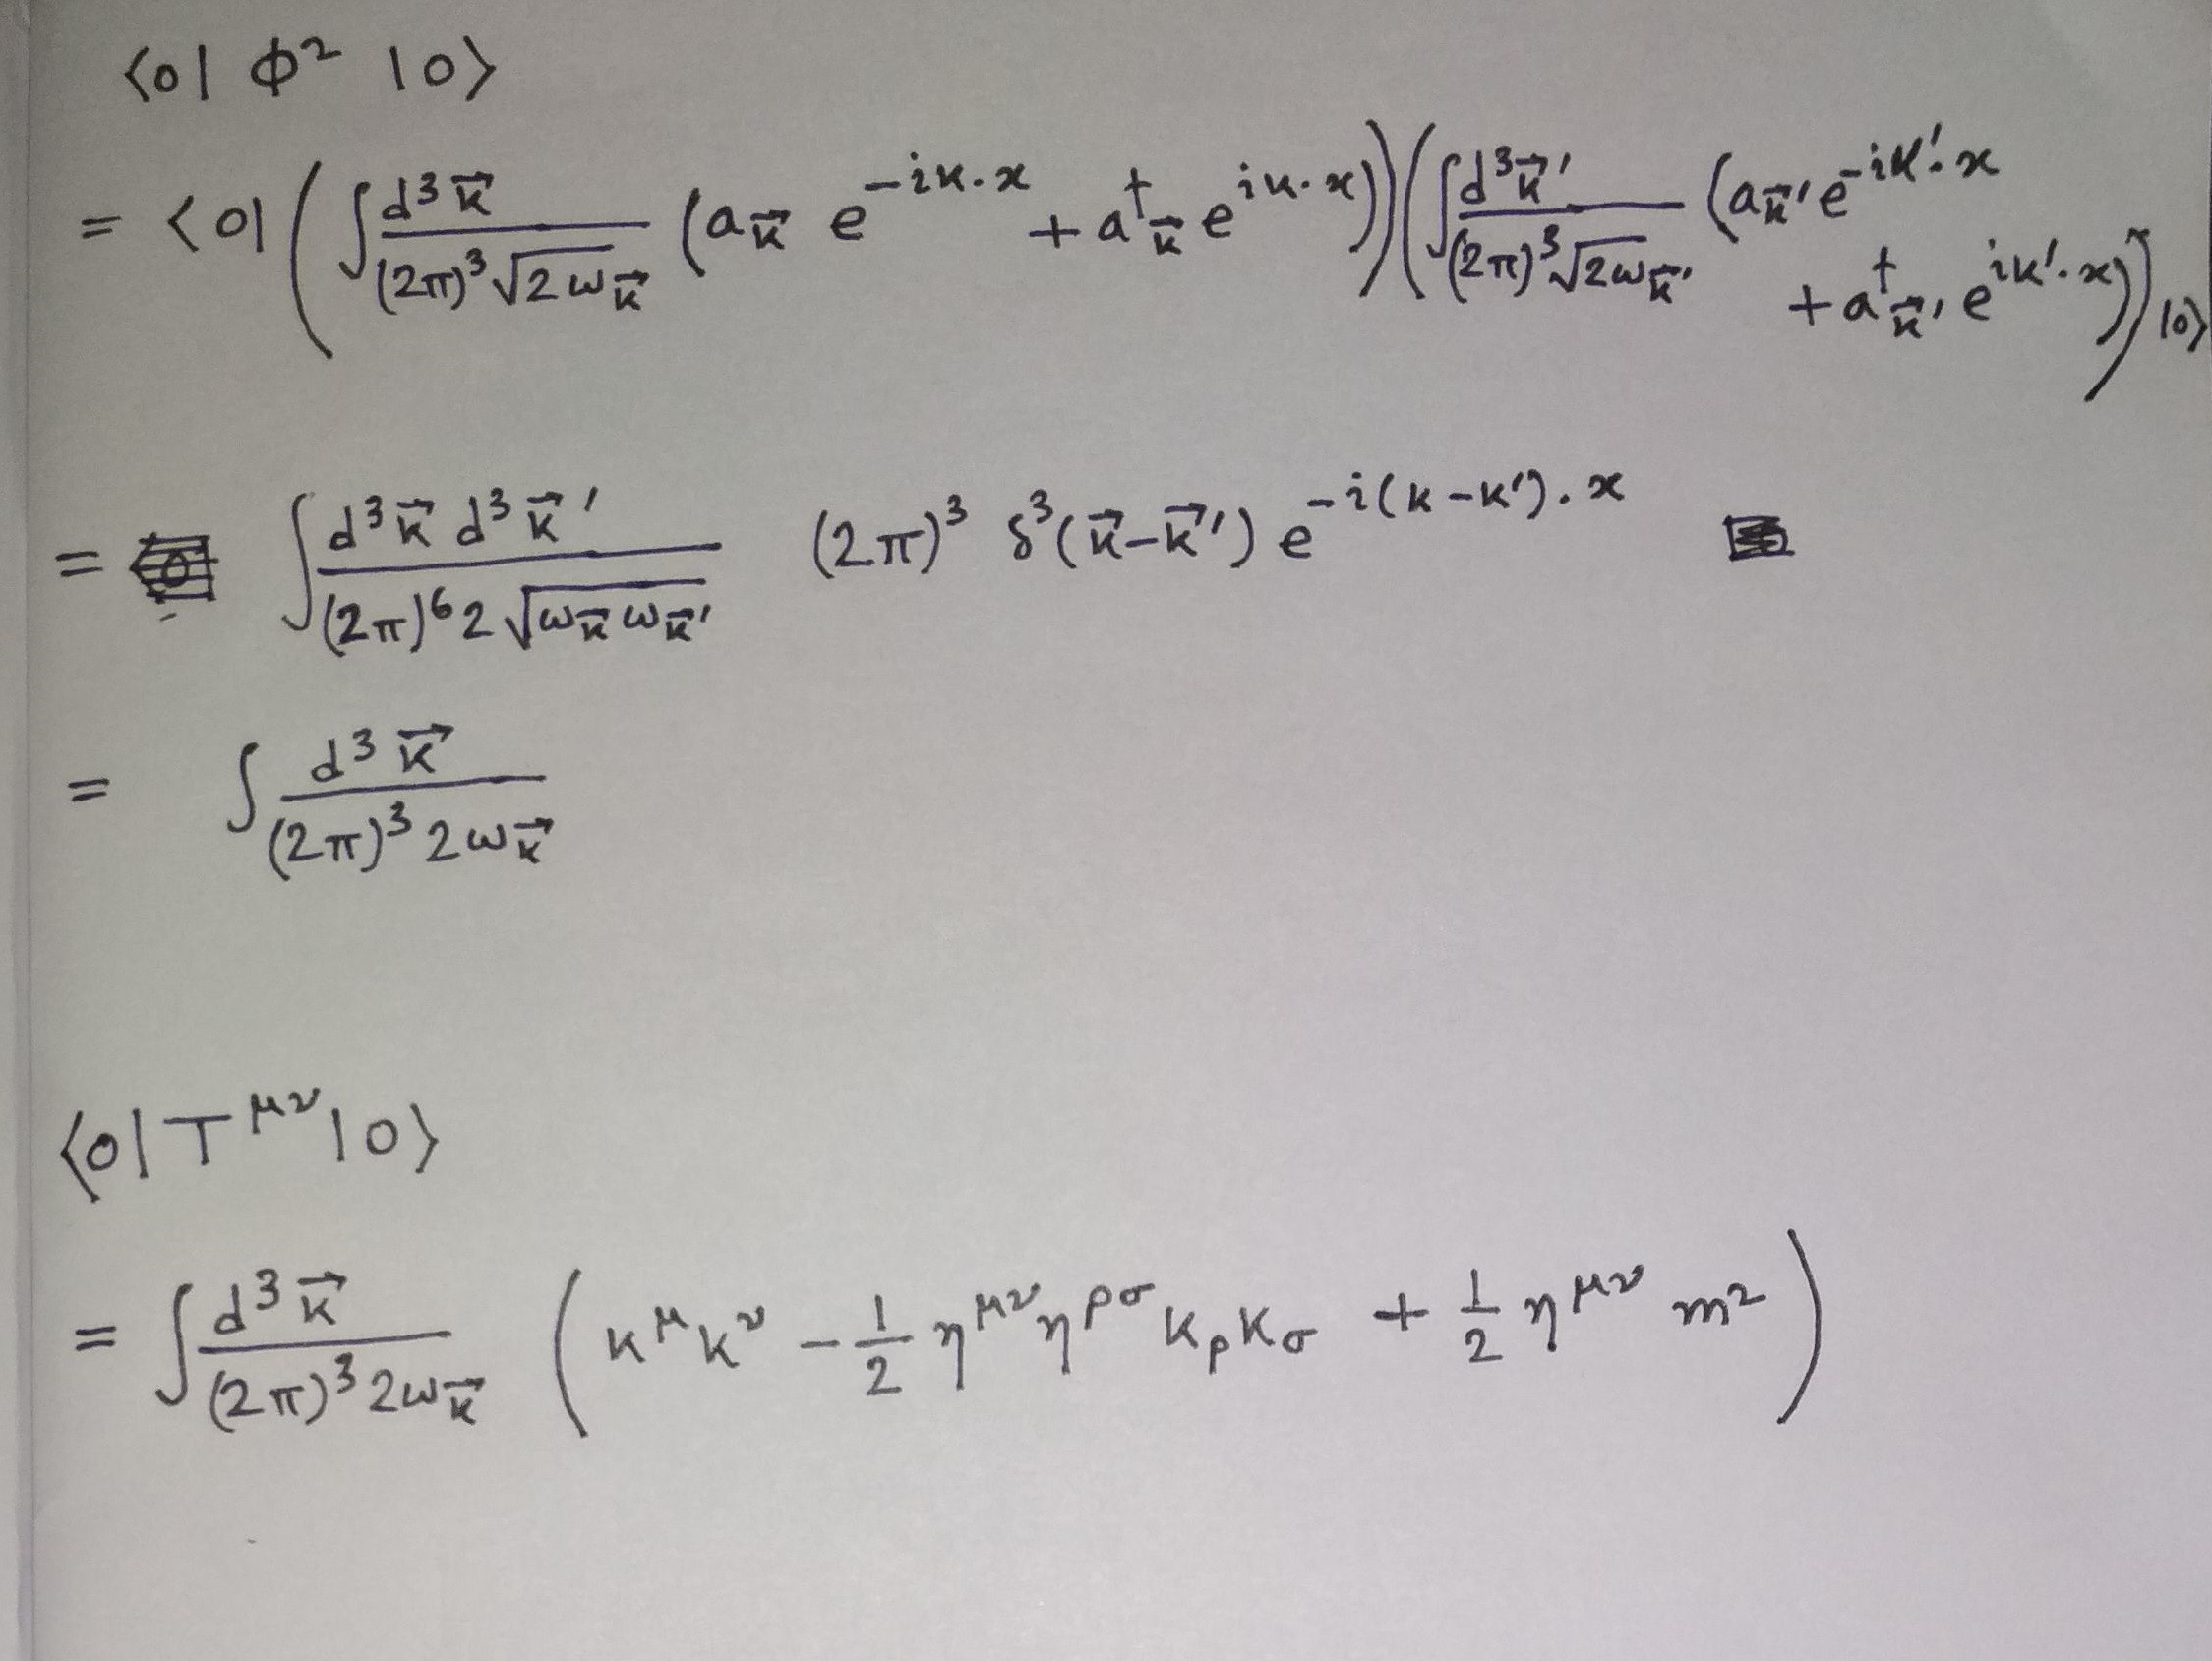 ⟨0| ϕ² |0⟩
= ⟨0| ( ∫ d³k⃗ / ((2π)³ √(2ω_k⃗)) (a_k⃗ e^(-ik·x) + a†_k⃗ e^(ik·x)) ) ( ∫ d³k⃗' / ((2π)³ √(2ω_k⃗')) (a_k⃗' e^(-ik'·x) + a†_k⃗' e^(ik'·x)) ) |0⟩
= ∫ d³k⃗ d³k⃗' / ((2π)⁶ 2 √(ω_k⃗ ω_k⃗')) (2π)³ δ³(k⃗-k⃗') e^(-i(k-k')·x)
= ∫ d³k⃗ / ((2π)³ 2ω_k⃗)
⟨0| T^μν |0⟩
= ∫ d³k⃗ / ((2π)³ 2ω_k⃗) ( k^μ k^ν - 1/2 η^μν η^ρσ k_ρ k_σ + 1/2 η^μν m² )